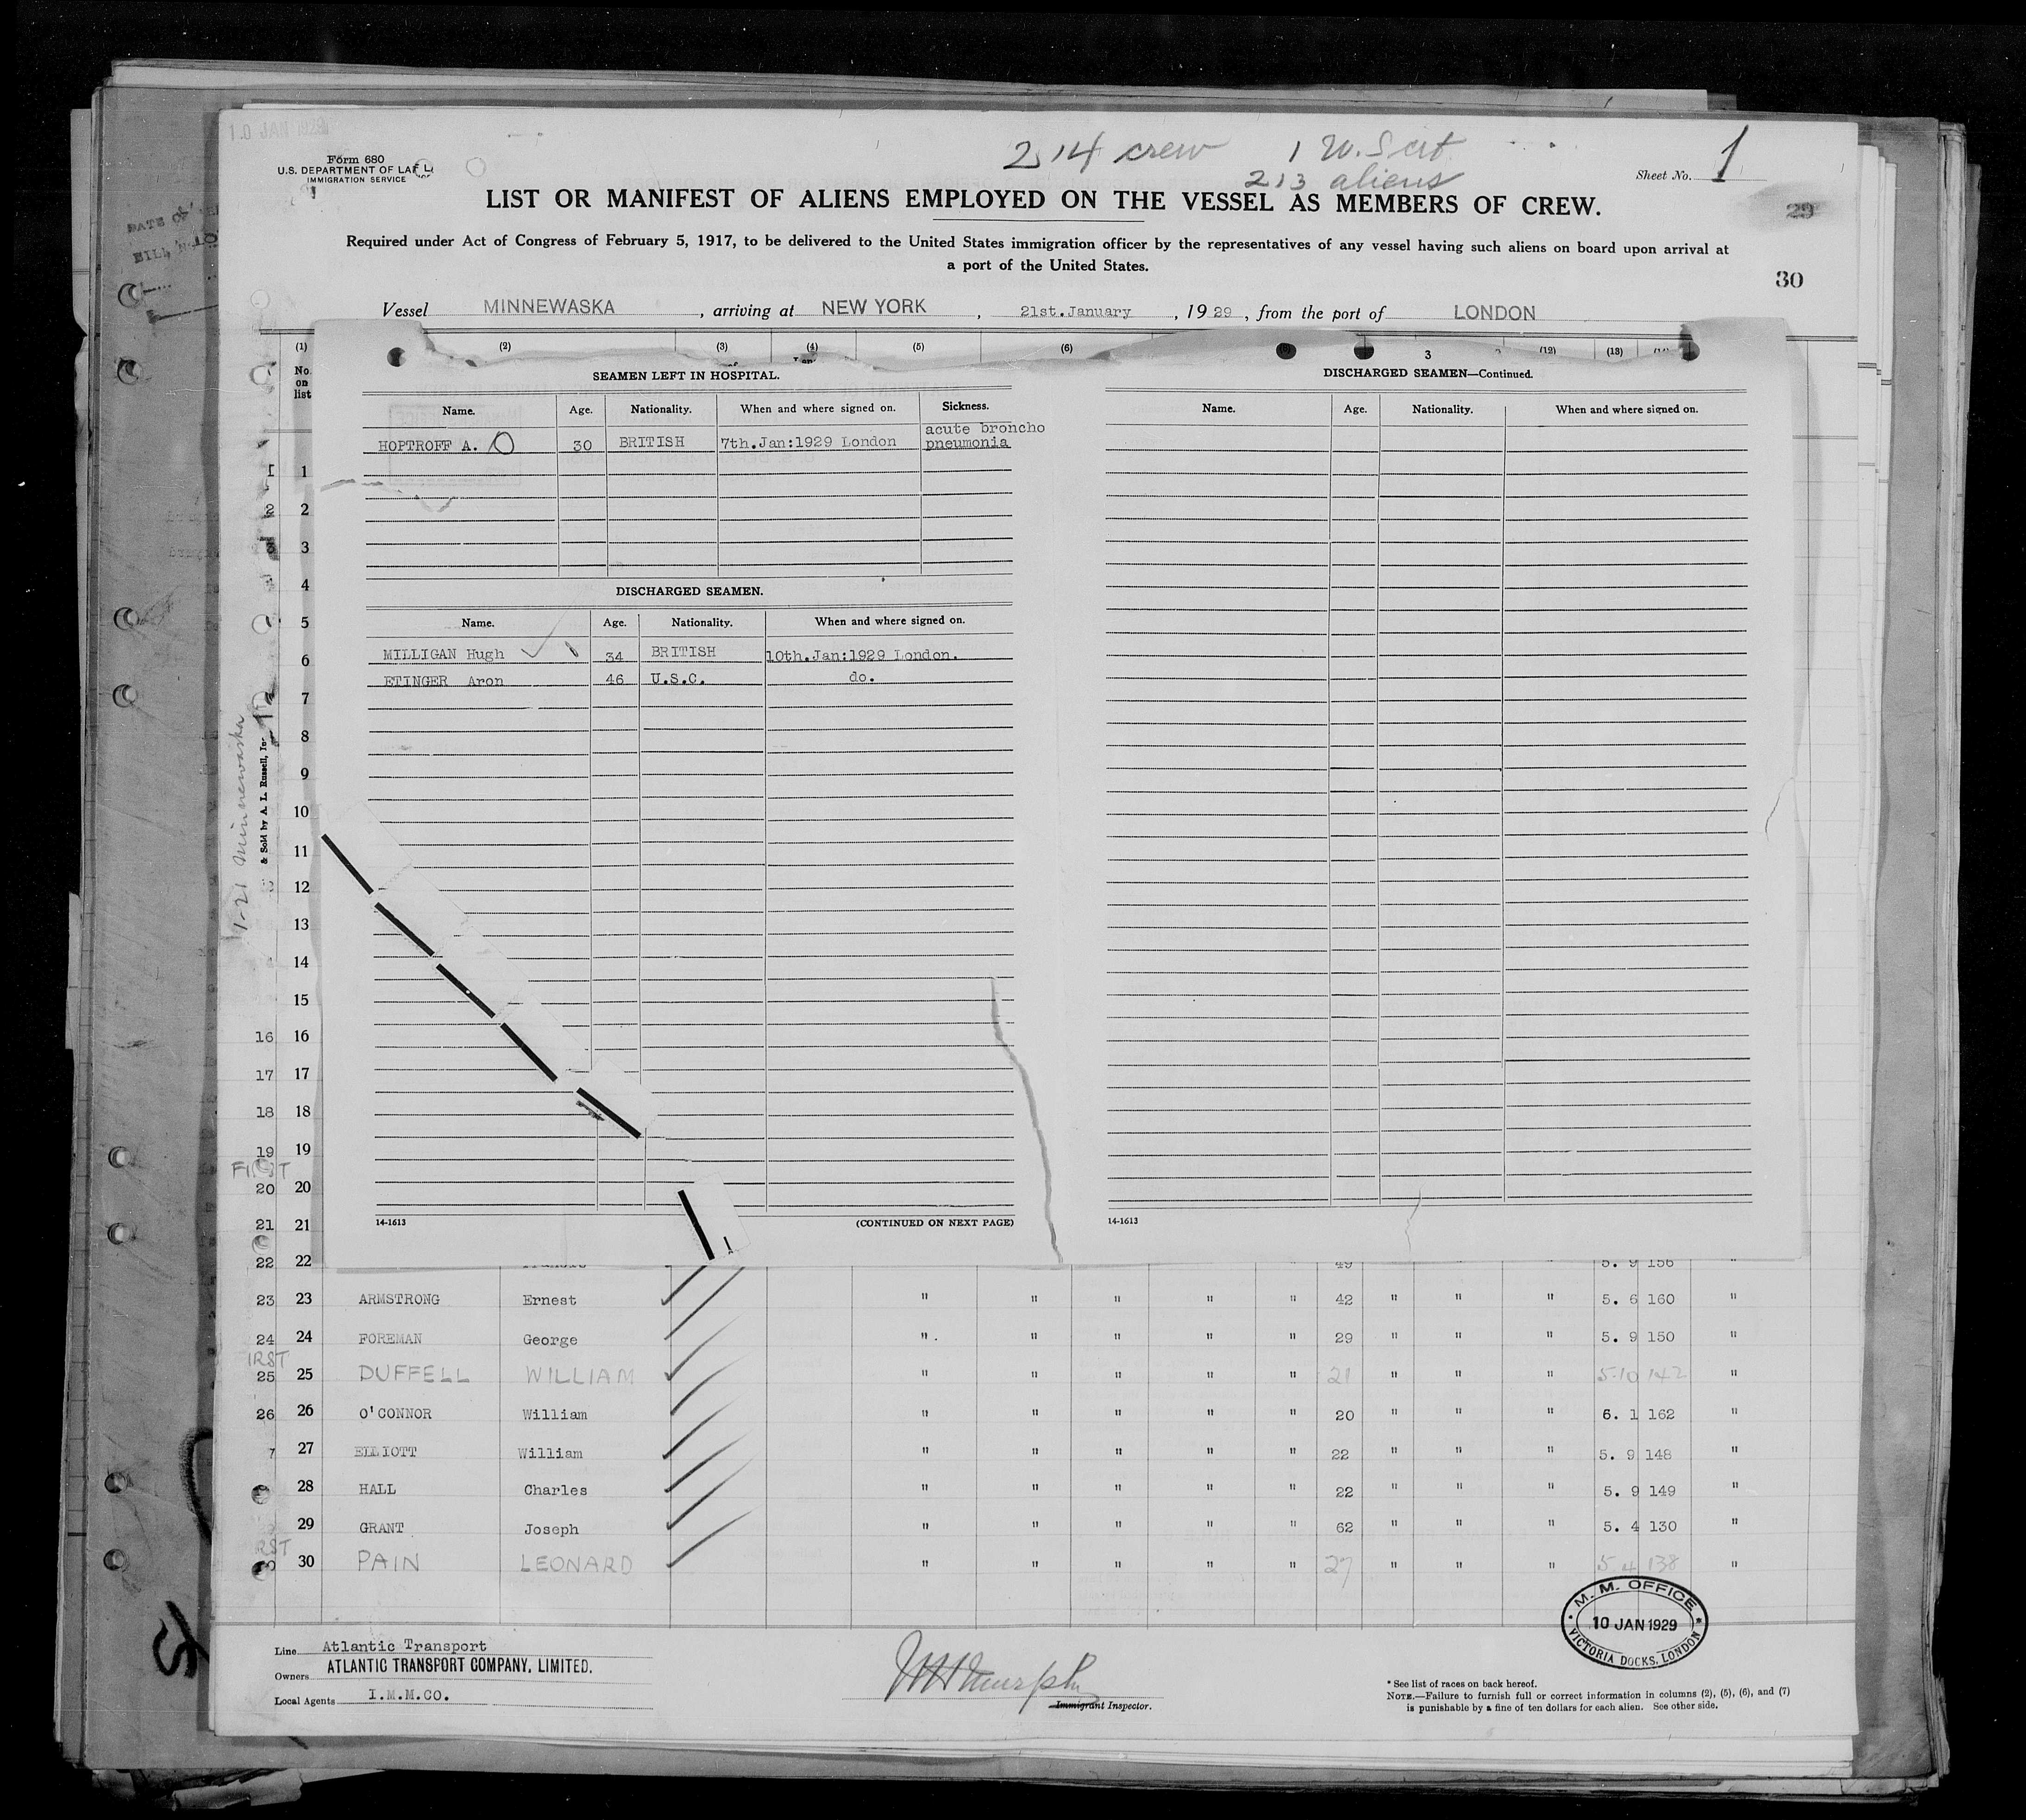 10 JAN 1929
Form 680
U.S. DEPARTMENT OF
IMMIGRATION SERVICE
214 crew
213 aliens
Sheet No. 1
LIST OR MANIFEST OF ALIENS EMPLOYED ON THE VESSEL AS MEMBERS OF CREW.
29
Required under Act of Congress of February 5, 1917, to be delivered to the United States immigration officer by the representatives of any vessel having such aliens on board upon arrival at
a port of the United States.
30
Vessel MINNEWASKA, arriving at NEW YORK, 21st.January, 1929, from the port of LONDON
(1) (2) (3) (4) (5) (6) 3 (12) (13)
No. on list
SEAMEN LEFT IN HOSPITAL.
Name. Age. Nationality. When and where signed on. Sickness.
HOPTROFF A. 30 BRITISH 7th.Jan:1929 London acute broncho pneumonia
DISCHARGED SEAMEN.
Name. Age. Nationality. When and where signed on.
MILLIGAN Hugh 34 BRITISH 10th.Jan:1929 London.
ETINGER Aron 46 U.S.C. do.
14-1613 (CONTINUED ON NEXT PAGE)
DISCHARGED SEAMEN—Continued.
Name. Age. Nationality. When and where signed on.
14-1613
1
2
3
4
5
6
7
8
9
10
11
12
13
14
15
16 16
17 17
18 18
19 19
20 20
21 21
1-21 Minnewaska
& Sold by A. L. Russell, Inc.
22 22 49 5. 9 156 "
23 23 ARMSTRONG Ernest " " " " " 42 " " " 5. 6 160 "
24 24 FOREMAN George " " " " " 29 " " " 5. 9 150 "
25 25 DUFFELL WILLIAM " " " " " 21 " " " 5.10 142 "
26 26 O'CONNOR William " " " " " 20 " " " 6. 1 162 "
7 27 ELLIOTT William " " " " " 22 " " " 5. 9 148 "
28 HALL Charles " " " " " 22 " " " 5. 9 149 "
29 GRANT Joseph " " " " " 62 " " " 5. 4 130 "
30 PAIN LEONARD " " " " " 27 " " " 5 4 138 "
M. M. OFFICE
10 JAN 1929
VICTORIA DOCKS, LONDON
Line Atlantic Transport
Owners ATLANTIC TRANSPORT COMPANY, LIMITED.
Local Agents I.M.M.CO.
Immigrant Inspector.
* See list of races on back hereof.
NOTE.—Failure to furnish full or correct information in columns (2), (5), (6), and (7)
is punishable by a fine of ten dollars for each alien. See other side.